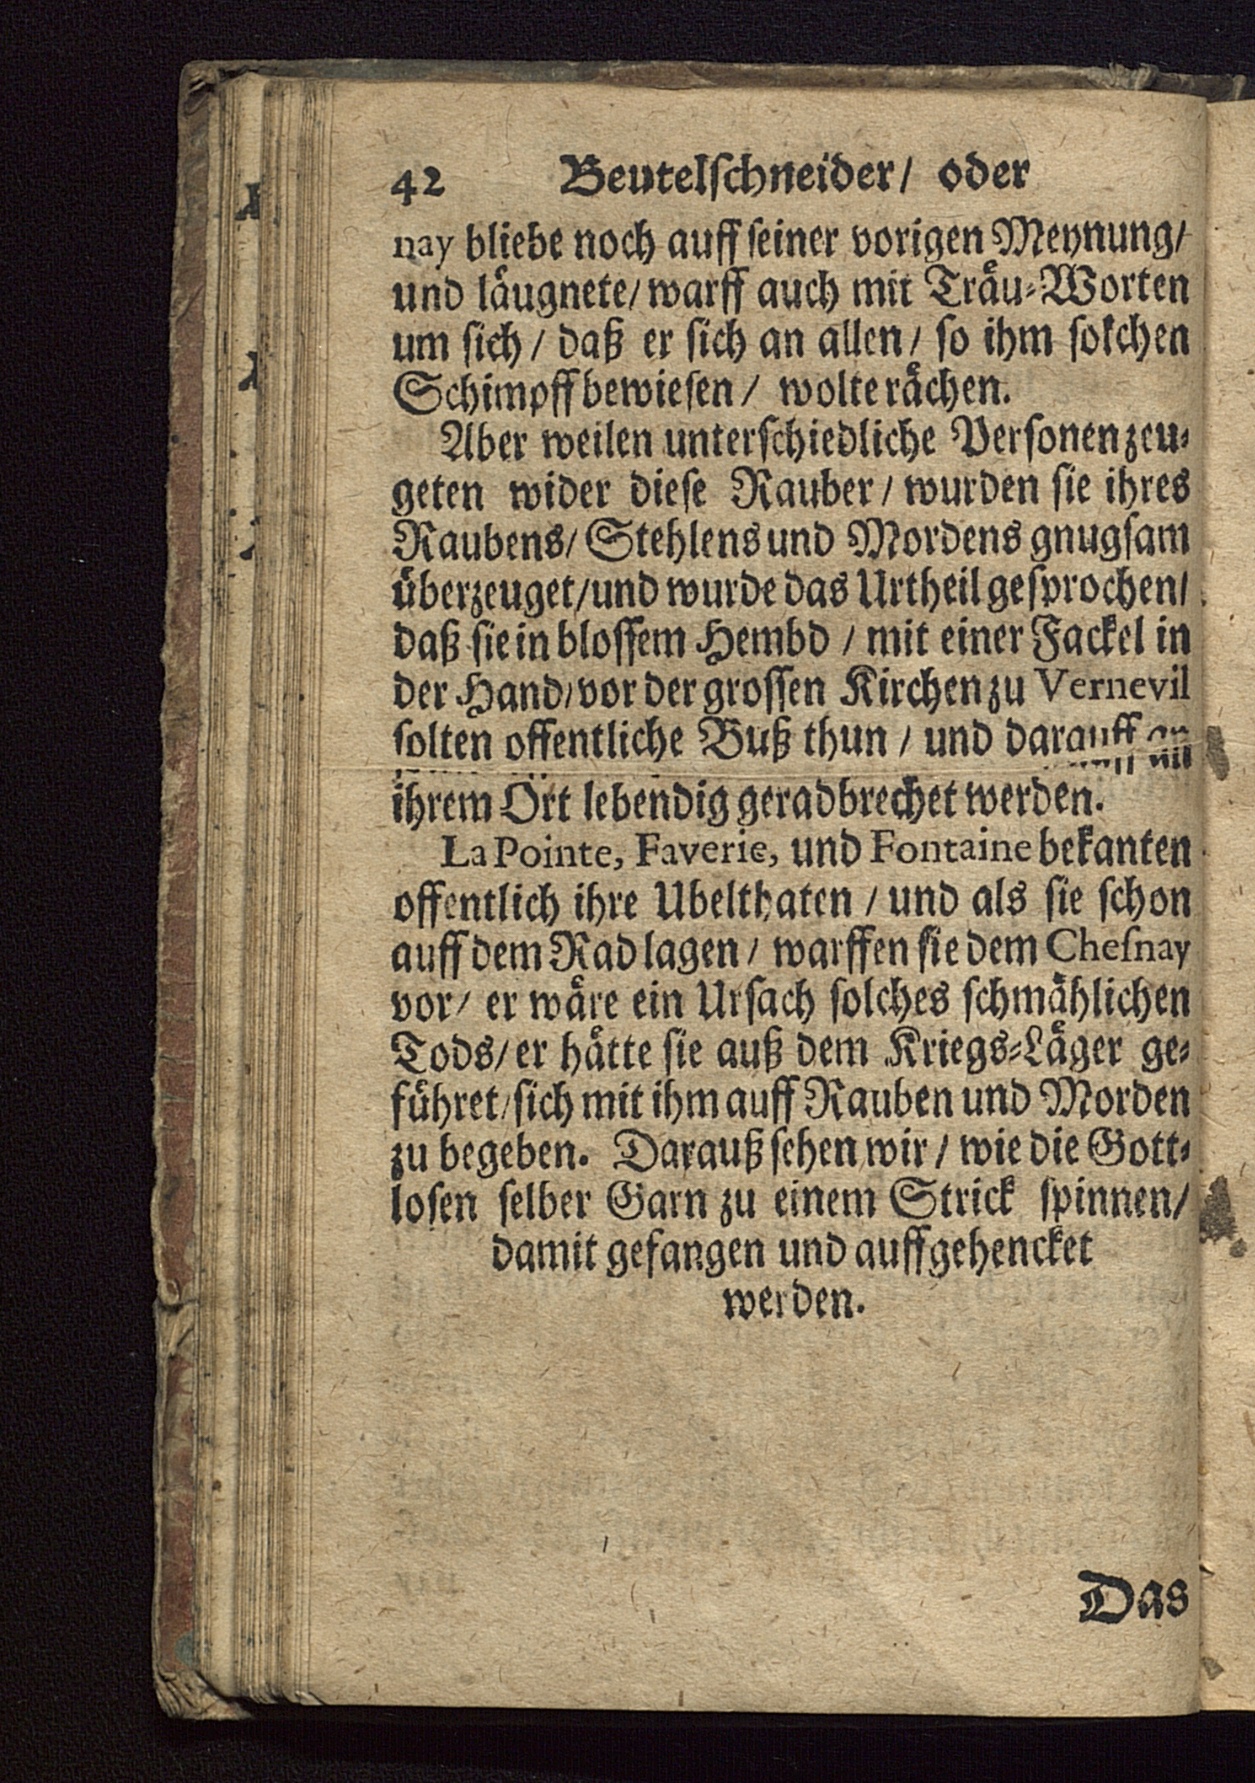 42 Beutelschneider/ oder
nay bliebe noch auff seiner vorigen Meynung/
und läugnete/ warff auch mit Träu-Worten
um sich/ daß er sich an allen/ so ihm solchen
Schimpff bewiesen/ wolte rächen.
Aber weilen unterschiedliche Personen zeu-
geten wider diese Rauber/ wurden sie ihres
Raubens/ Stehlens und Mordens gnugsam
überzeuget/ und wurde das Urtheil gesprochen/
daß sie in blossem Hembd/ mit einer Fackel in
der Hand/ vor der grossen Kirchen zu Vernevil
solten offentliche Buß thun/ und darauff an
ihrem Ort lebendig geradbrechet werden.
La Pointe, Faverie, und Fontaine bekanten
offentlich ihre Ubelthaten/ und als sie schon
auff dem Rad lagen/ warffen sie dem Chesnay
vor/ er wäre ein Ursach solches schmählichen
Tods/ er hätte sie auß dem Kriegs-Läger ge-
führet/ sich mit ihm auff Rauben und Morden
zu begeben. Darauß sehen wir/ wie die Gott-
losen selber Garn zu einem Strick spinnen/
damit gefangen und auffgehencket
werden.
Das